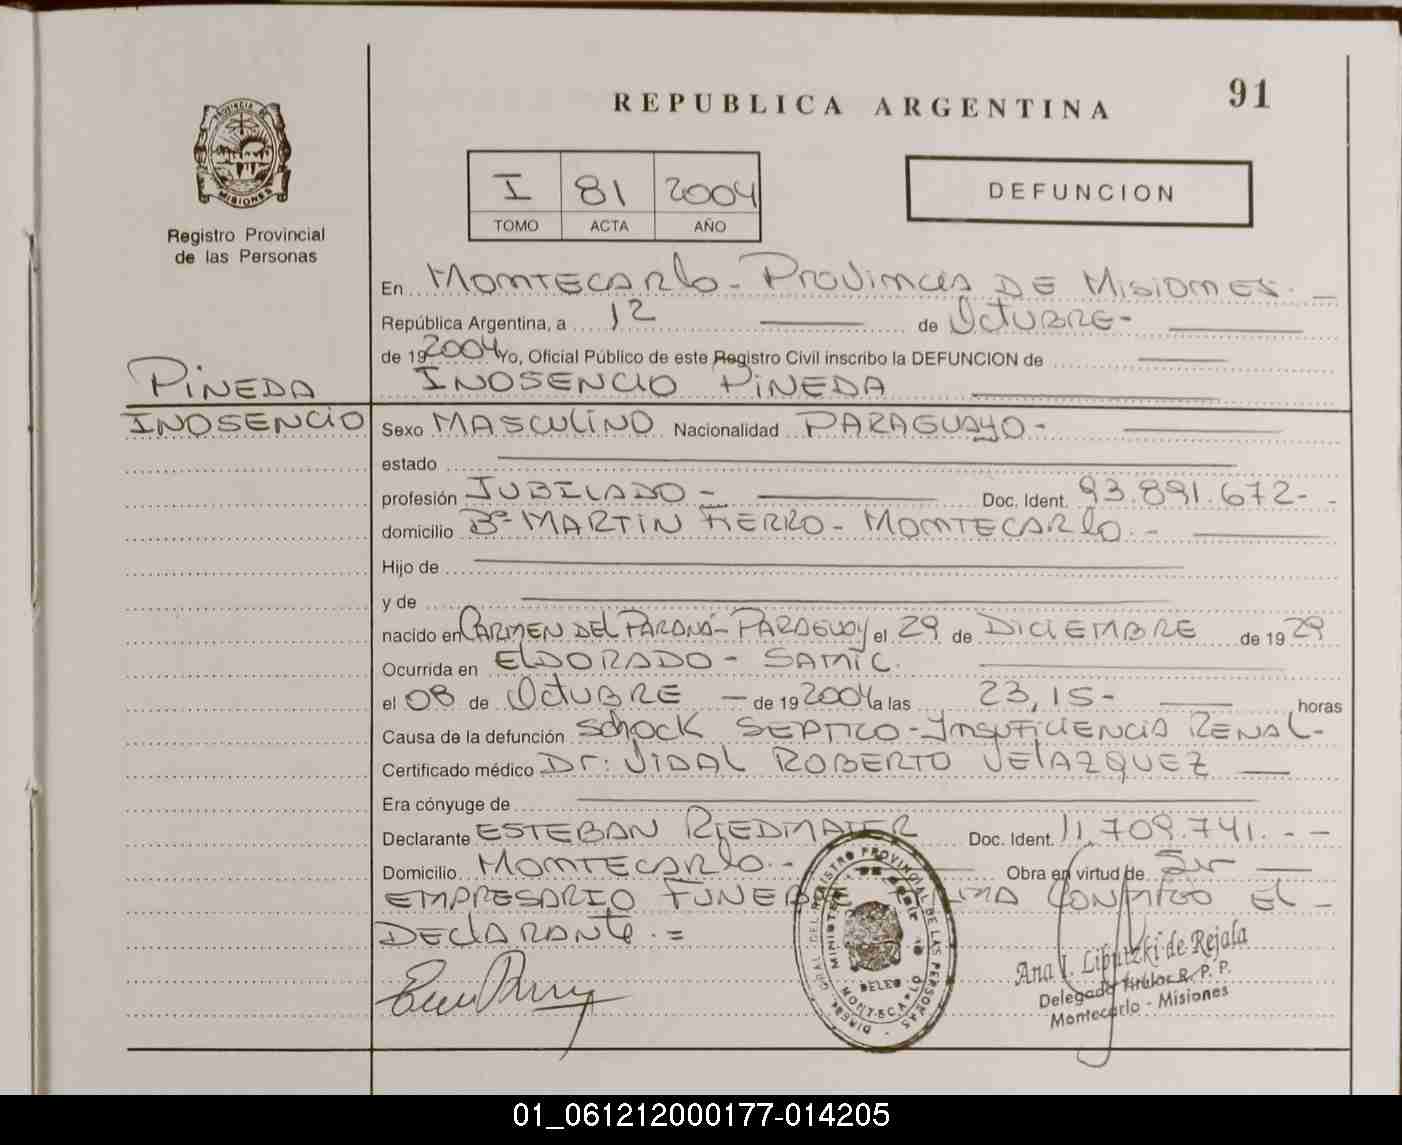 91
REPUBLICA ARGENTINA
PROVINCIA DE
MISIONES
Registro Provincial
de las Personas
I 81 2004
TOMO ACTA AÑO
DEFUNCION
En MONTECARLO - PROVINCIA DE MISIONES. -
República Argentina, a 12 de OCTUBRE -
de 192004 Yo, Oficial Público de este Registro Civil inscribo la DEFUNCION de
PINEDA INOSENCIO PINEDA
INOSENCIO Sexo MASCULINO Nacionalidad PARAGUAYO -
estado
profesión JUBILADO - Doc. Ident. 93.891.672 - -
domicilio Bº MARTIN FIERRO - MONTECARLO. -
Hijo de
y de
nacido en CARMEN DEL PARANÁ - PARAGUAY el 29 de DICIEMBRE de 19 29
Ocurrida en ELDORADO - SAMIC.
el 08 de OCTUBRE - de 19 2004 a las 23,15 - horas
Causa de la defunción SCHOCK SEPTICO - INSUFICIENCIA RENAL -
Certificado médico Dr: VIDAL ROBERTO VELAZQUEZ
Era cónyuge de
Declarante ESTEBAN RIEDMAIER Doc. Ident. 11.709.741. - -
Domicilio MONTECARLO. - Obra en virtud de Ser
EMPRESARIO CONMIGO EL -
DECLARANTE. =
DIREC. GRAL. DEL REGISTRO PROVINCIAL DE LAS PERSONAS
MONTECARLO
Ana I. Liputzki de Rejala
Delegado Titular R. P. P.
Montecarlo - Misiones
01_061212000177-014205